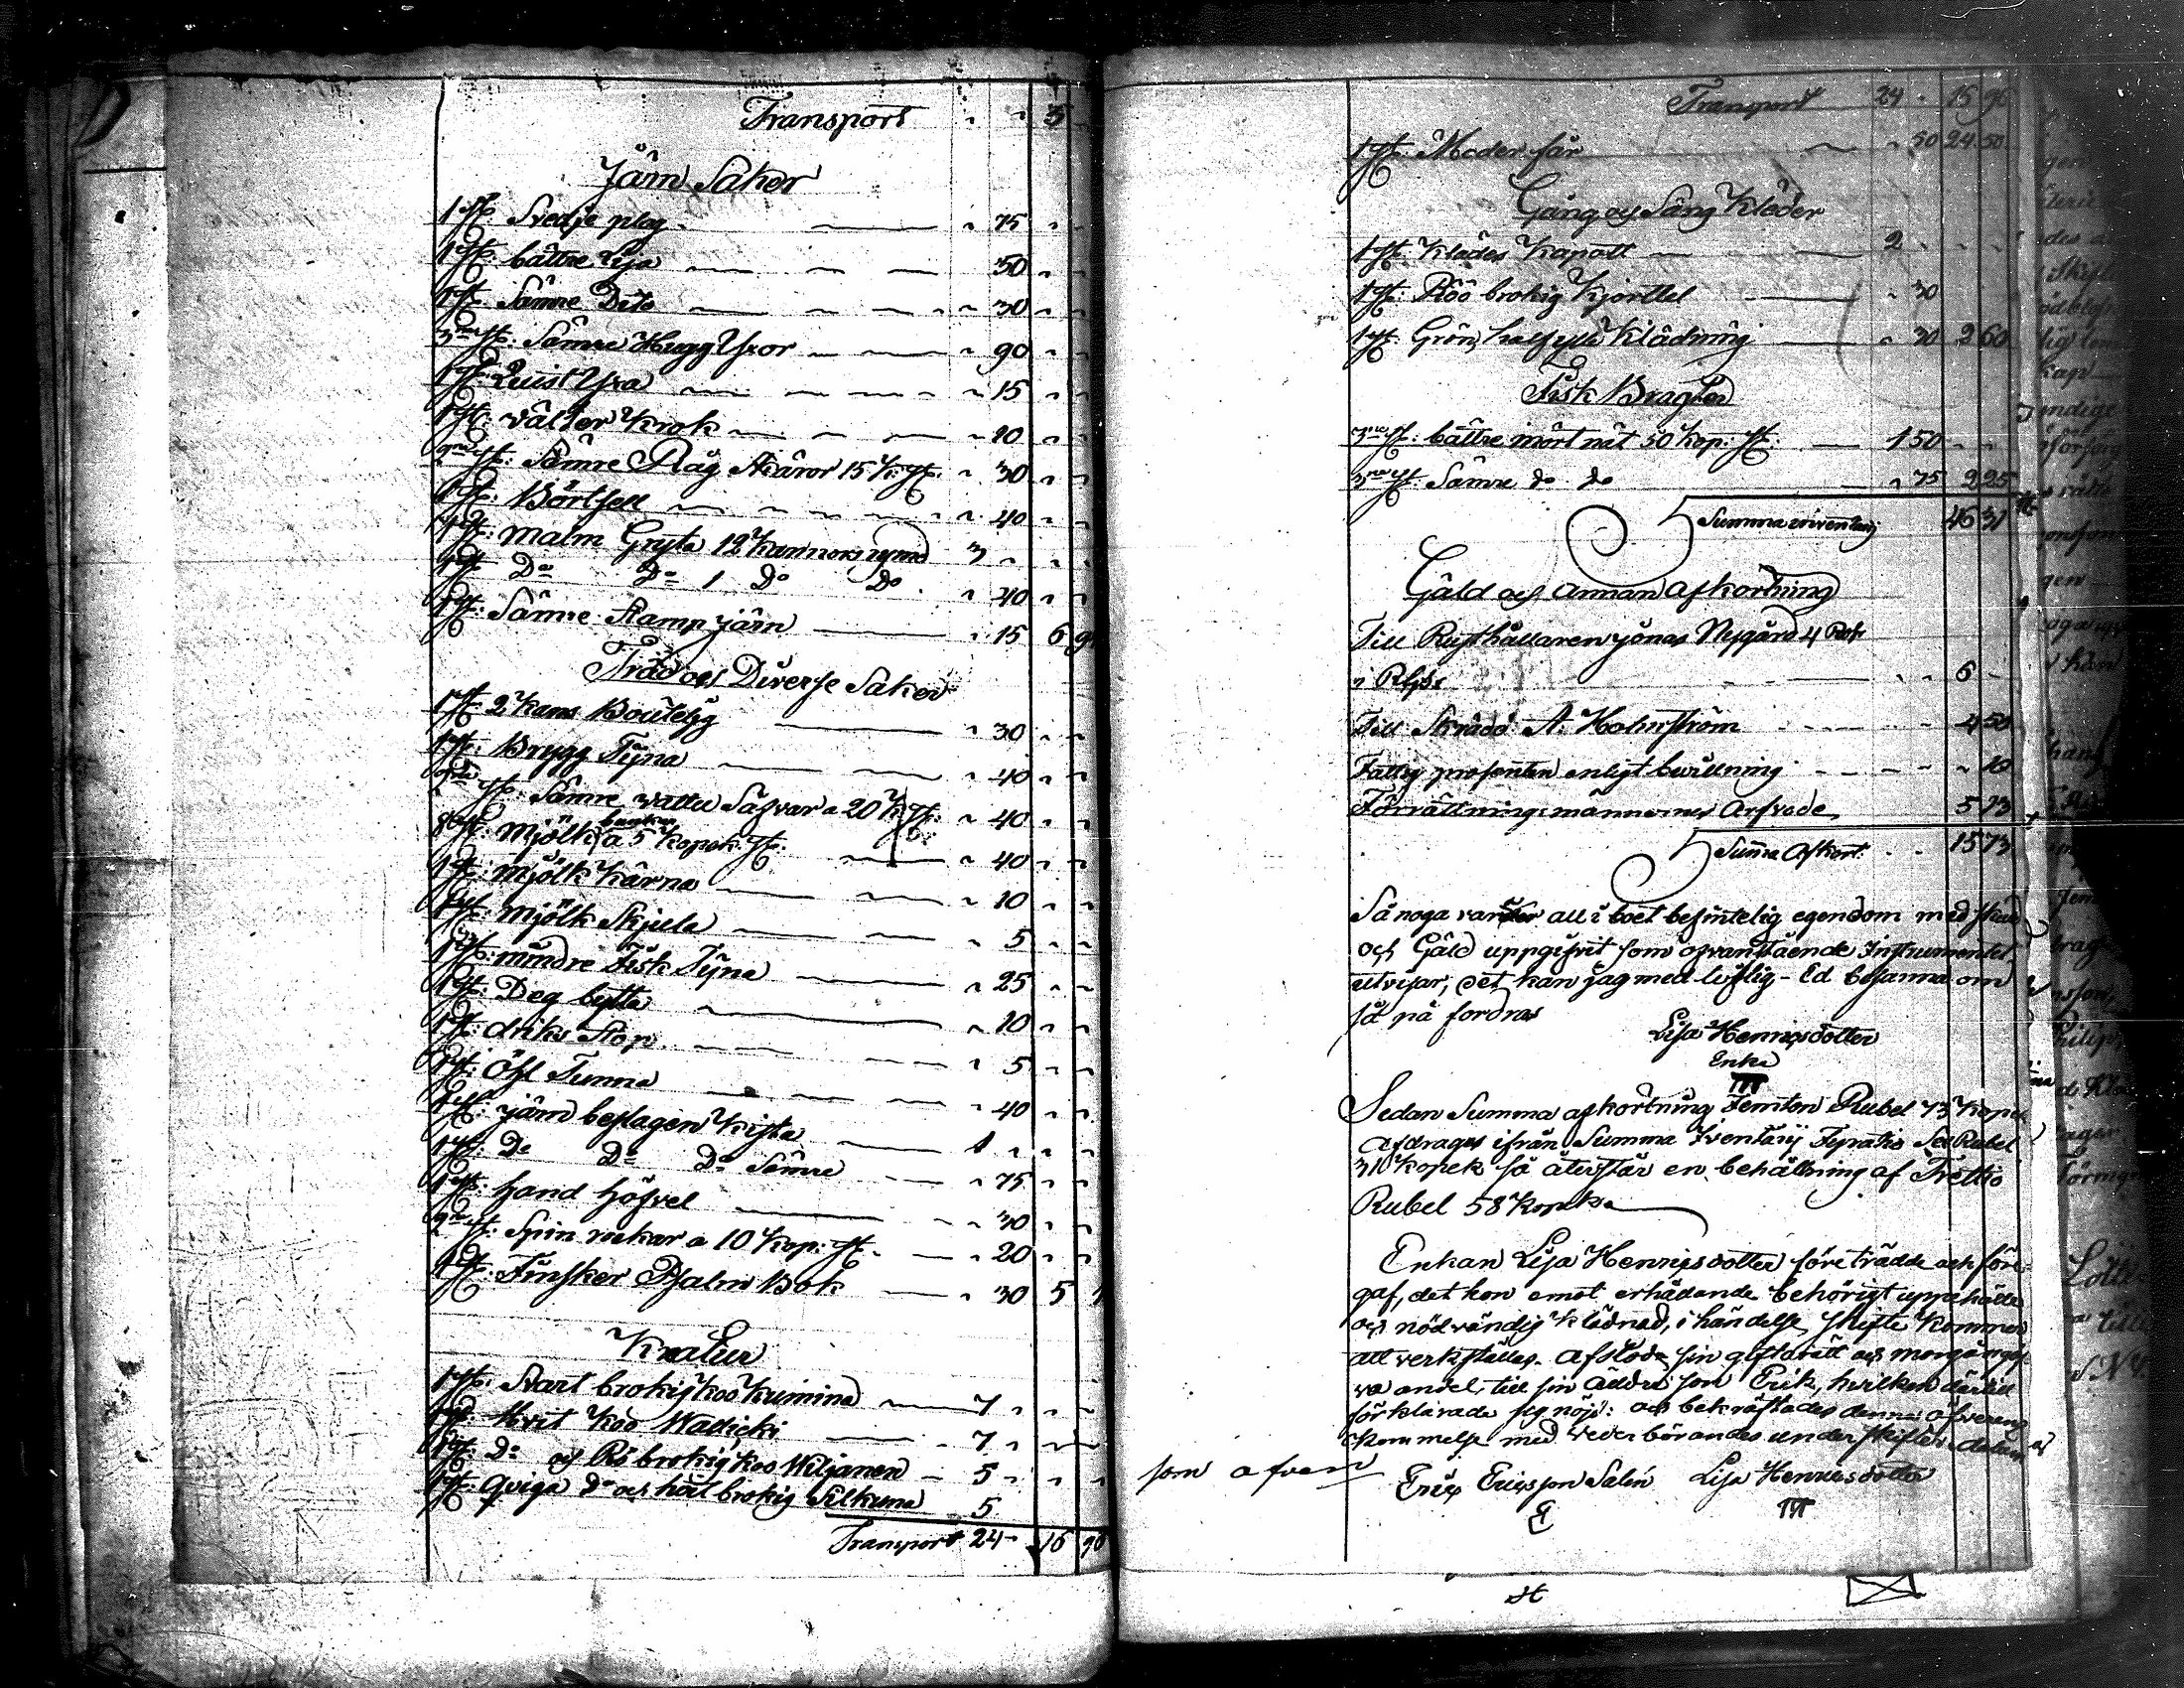 Transport " " 5
Järn Saker
1 st: Svedje plog " 75 " "
1 st: bättre Lija 50 "
1 st: Sämre Dito " " 30 " "
3ne st: Sämre Hugg Yxor " 90 " "
1 st: Quist Yxa " 15 " "
1 st: välter Krok " 10 " "
2ne st: Sämre Råg Skäror 15 k: st. " 30 " "
1 st: Bårtsell " 40 " "
1 st: malm Gryta 12 Kannors rymd 3 " " "
1 st Do Do 1 Do Do " 40 " "
1 st: Sämre Stamp järn " 15 6
Träd och Diverse Saker
1 st: 2 Kans Bouteljg " 30 " "
1 st: Brygg Tyna " 40 " "
2ne st: Sämre vattu Såfvar a 20 k st: " 40 " "
8 st: Mjölk bunkar a 5 kopek: st: " 40 " "
1 st: Mjölk Kärna " 10 " "
1 st: Mjölk Skjula " 5 " "
1 st: mindre Fisk Tyna " 25 " "
1 st: Deg bytta " 10 " "
1 st: driks Stop " 5 " "
1 st: Öhl Tunna " 40 " "
1 st: järn beslagen Kista 1 " " "
1 st: Do Do Do Sämre " 75 " "
1 st: hand höfvel " 30 " "
2ne st: Spin rockar a 10 kop: st: " 20 " "
1 st: Finsker Psalm Bok " 30 5
Kreatur
1 st: Svart brokig koo Kuimina 7 " " "
1 st: Hvit Koo Wallicki 7 " "
1 st: Do och Rö brokig koo Miljanen 5 " " "
1 st: Qviga Do och hvit brokig Silkuna 5
Transport 24 " 16 96
Transport 24 " 15 96
1 st: Moder får " 50 24 50
Gång och Säng Kläder
1 st: Klädes Kapott 2 " " "
1 st: Röö brokig Kjorttel " 30
1 st: Grön half ylle Klädning " 30 2 60
Fisk Bragder
3ne st: bättre mört nät 50 kop: st: 1 50 " "
3ne st: Sämre do do " 75 2 25
Summa inventarij 46 31
Gäld och annan afkortning
Till Rusthållaren Jonas Nygård 4 Rub
i Rgs: " " 6 "
Till Skrädd: A: Holmström 4 50
Fattig prosenten enligt bevillning " 10
Förrättningsmännernes Arfvode 5 13
Summa Afkort: 15 73
Så noga varder all i boet befintelig egendom med skuld
och Gäld uppgifvit som ofvanstående Instrumentet
utvisar, det kan jag med liflig Ed besanna om
så på fordras
Lisa Henrigsdotter
Enka
Sedan Summa afkortning Femton Rubel 73 Kopek
Afdrages ifrån Summa Inventarij Fyratio Sex Rubel
31 Kopek så återstår en behållning af Trettio
Rubel 58 Kopek
Enkan Lisa Henrigsdotter företrädde och före-
gaf, det hon emot erhådande behörigt uppehälle
och nödvändig klädnad, i händelse skifte kommer
att verkställas Afstodo sin giftorätt och morgongåf-
va andel, till sin äldre son Erik, hvilken dertill
förklarade sig nöjd: och bekräftades denne öfverens
kommelse med vederbörandes underskrifter datum
som ofvan
Erig Erigsson Salin Lisa Henrigsdotter
E